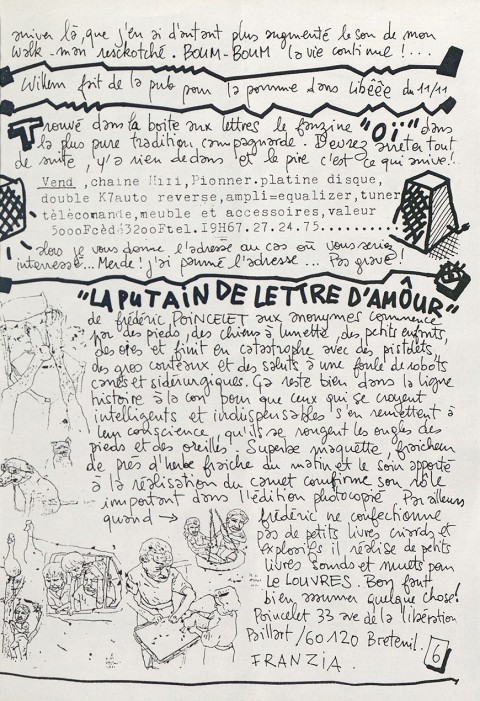 arriver là, que j'en ai d'autant plus augmenté le son de mon
walk-man resckotché. BOUM-BOUM la vie continue !...
Willem fait de la pub pour la pomme dans Libêêe du 11/11
Trouvé dans la boite aux lettres le fanzine "OÏ" dans
la plus pure tradition campagnarde. Devrez arrêter tout
de suite, y'a rien dedans et le pire c'est ce qui arrive!.
Vend ,chaine Hifi,Pionner.platine disque,
double K7auto reverse,ampli=equalizer,tuner
tèlècomande,meuble et accessoires,valeur
5000Fcèdé3200Ftel.I9H67.27.24.75........
alors je vous donne l'adresse au cas où vous seriez
interressé... Merde! j'ai paumé l'adresse... Pas grave!
"LA PUTAIN DE LETTRE D'AMÔUR"
de frédéric POINCELET aux anonymes commence
par des pieds, des chiens à lunette, des petits enfants,
des oies et finit en catastrophe avec des pistolets
des gros couteaux et des saluts à une foule de robots
carrés et sidérurgiques. Ça reste bien dans la ligne
histoire à la con pour que ceux qui se croyent
intelligents et indispensables s'en remettent à
leur conscience, qu'ils se rongent les ongles des
pieds et des oreilles. Superbe maquette, fraicheur
de près d'herbe fraiche du matin et le soin apporté
à la réalisation du carnet confirme son rôle
important dans l'édition photocopié Par ailleurs
quand → frédéric ne confectionne
pas de petits livres criards et
explosifs il réalise de petits
livres sourds et muets pour
Le LOUVRES. Bon faut
bien assumer quelque chose!
Poincelet 33 ave de la libération
Paillart / 60120 Breteuil.
FRANZIA.
6